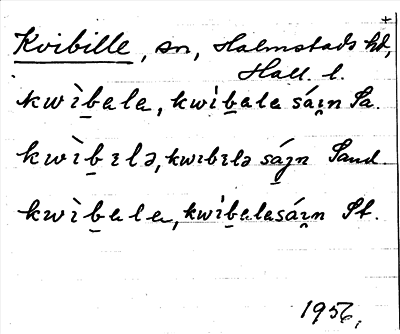 +
Kvibille, sn, Halmstads hd,
Hall. l.
kwìb̲ele, kwìb̲ele sái̯n Sa.
kwìb̲ɪlə, kwɪbɪlə sái̯n Sand.
kwìb̲ele, kwìb̲elesái̯n St.
1956,